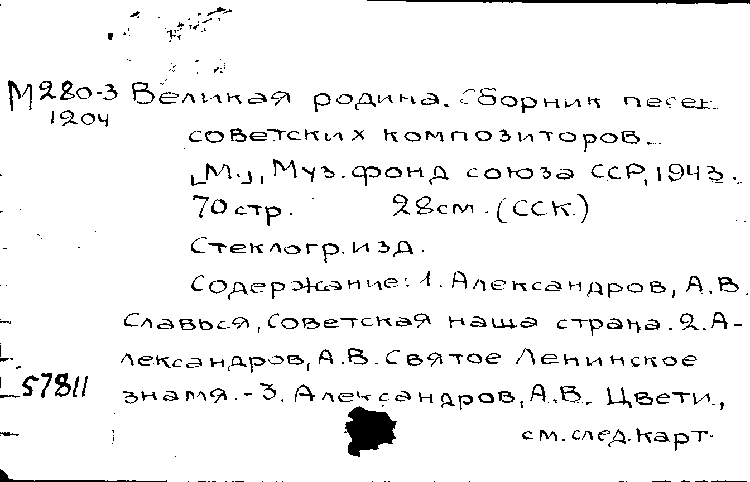 М280-3 Великая родина. Сборник песен
1204
советских композиторов.
[М.], Муз. фонд союза ССР, 1943.
70 стр. 28 см. (ССК.)
Стеклогр. изд.
Содержание: 1. Александров, А.В.
Славься, Советская наша страна. 2. А-
лександров, А.В. Святое Ленинское
57811 знамя. - 3. Александров, А.В. Цвети,
см. след. карт.